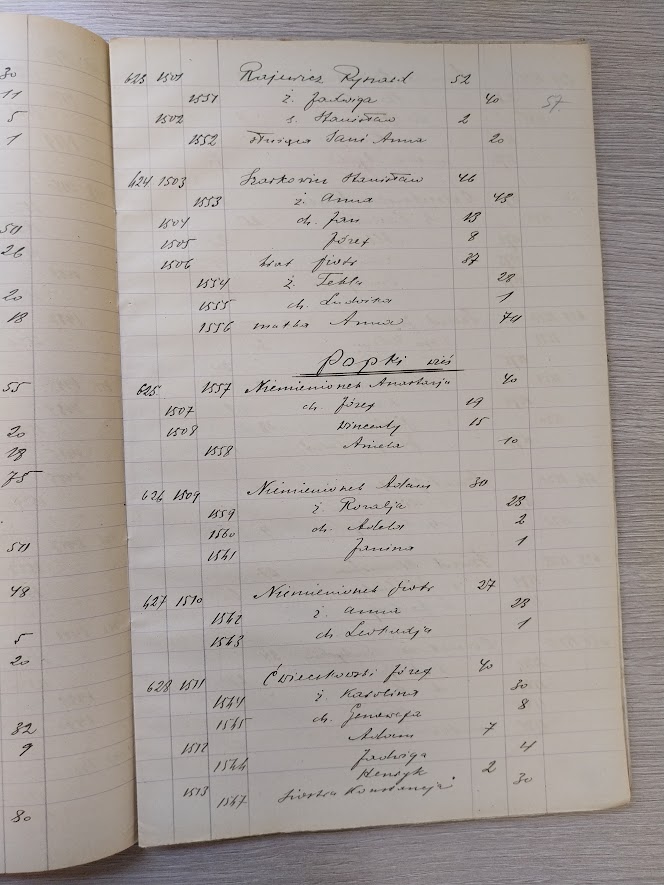 30
11
5
1
50
26
20
18
55
20
28
75
50
48
5
20
82
9
80
57
623 1501 Rajewicz Ryszard 52
1551 ż. Jadwiga 40
1502 s. Stanisław 2
1552 służąca Anna 20
624 1503 Szarkowicz Stanisław 46
1553 ż. Anna 43
1504 ch. Jan 13
1505 Józef 8
1506 brat Piotr 37
1554 ż. Tekla 28
1555 ch. Ludwika 1
1556 matka Anna 70
Popki wieś
625 1557 Niemienionek Anastazja 40
1507 ch. Józef 19
1508 Wincenty 15
1558 Aniela 10
626 1509 Niemienionek Adam 30
1559 ż. Rozalja 23
1560 ch. Adela 2
1561 Janina 1
627 1510 Niemienionek Piotr 27
1562 ż. Anna 23
1563 ch. Leokadja 1
628 1511 Ćwieczkowski Józef 40
1564 ż. Karolina 30
1565 ch. Genowefa 8
1512 Adam 7
1566 Jadwiga 4
1513 Henryk 2
1567 siostra Konstancja 30